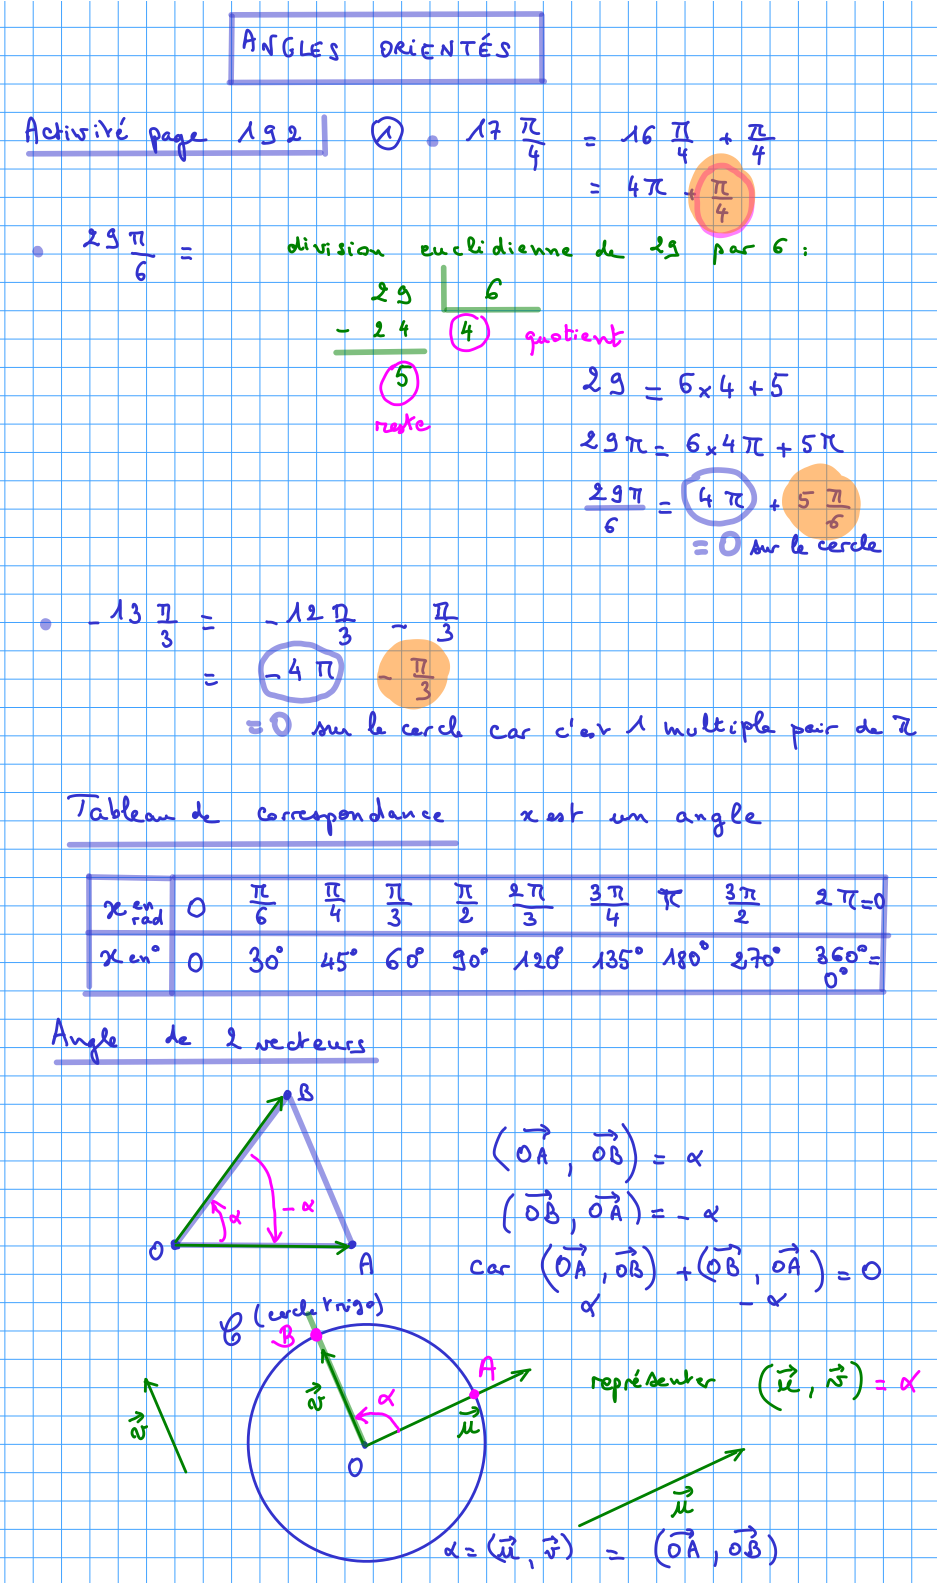 ANGLES ORIENTÉS
Activité page 192 ① • 17 π/4 = 16 π/4 + π/4
= 4π + π/4
• 29 π/6 = division euclidienne de 29 par 6 :
29 6
- 24 4 quotient
5
reste
29 = 6 × 4 + 5
29π = 6 × 4π + 5π
29π/6 = 4π + 5 π/6
= 0 sur le cercle
• - 13 π/3 = - 12 π/3 - π/3
= - 4 π - π/3
= 0 sur le cercle car c'est 1 multiple pair de π
Tableau de correspondance x est un angle
x en rad 0 π/6 π/4 π/3 π/2 2π/3 3π/4 π 3π/2 2π=0
x en ° 0 30° 45° 60° 90° 120° 135° 180° 270° 360° = 0°
Angle de 2 vecteurs
B
(OA→ , OB→) = α
α - α
(OB→ , OA→) = - α
O A
car (OA→ , OB→) + (OB→ , OA→) = 0
α - α
C (cercle trigo)
B
A
représenter (u→ , v→) = α
v→ v→ α u→
O
u→
α = (u→ , v→) = (OA→ , OB→)